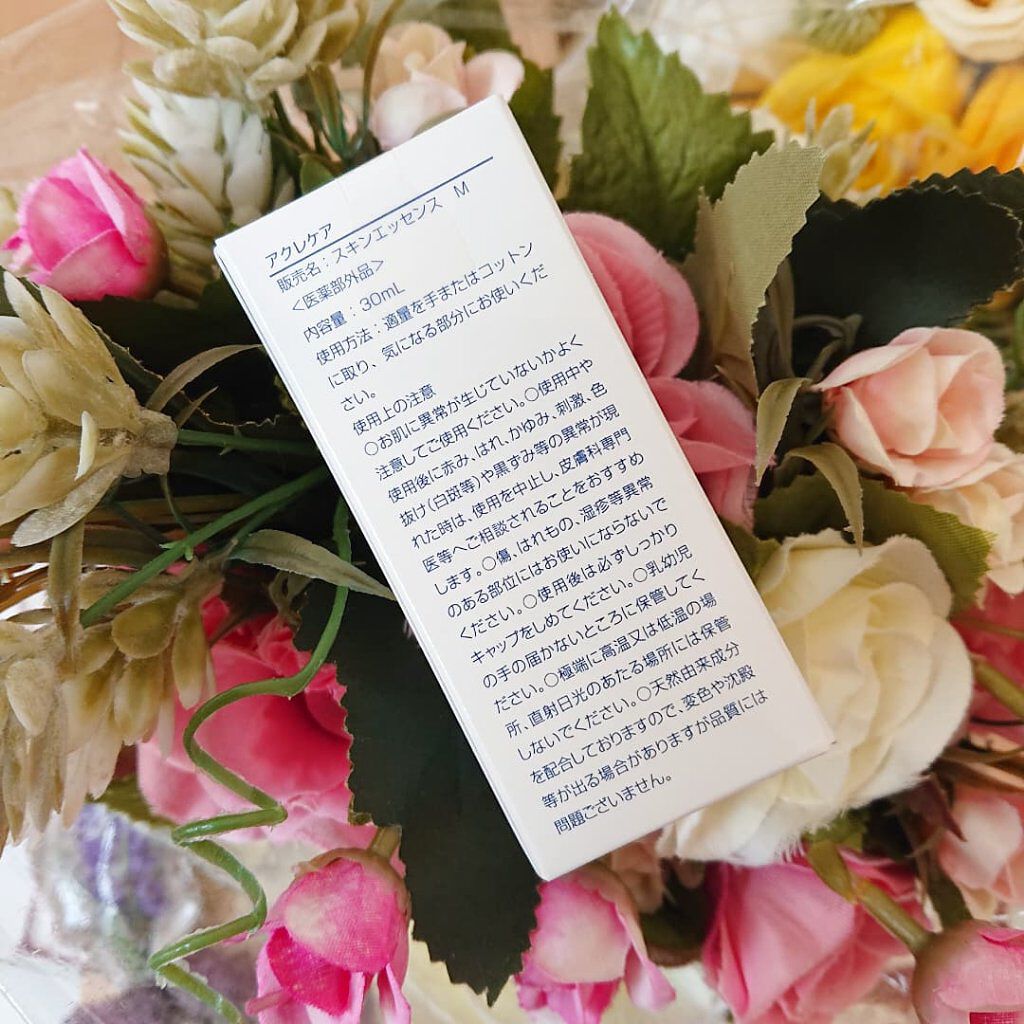 アクレケア
販売名：スキンエッセンス M
<医薬部外品>
内容量：30mL
使用方法：適量を手またはコットン
に取り、気になる部分にお使いくだ
さい。
使用上の注意
○お肌に異常が生じていないかよく
注意してご使用ください。○使用中や
使用後に赤み、はれ、かゆみ、刺激、色
抜け(白斑等)や黒ずみ等の異常が現
れた時は、使用を中止し、皮膚科専門
医等へご相談されることをおすすめ
します。○傷、はれもの、湿疹等異常
のある部位にはお使いにならないで
ください。○使用後は必ずしっかり
キャップをしめてください。○乳幼児
の手の届かないところに保管してく
ださい。○極端に高温又は低温の場
所、直射日光のあたる場所には保管
しないでください。○天然由来成分
を配合しておりますので、変色や沈殿
等が出る場合がありますが品質には
問題ございません。